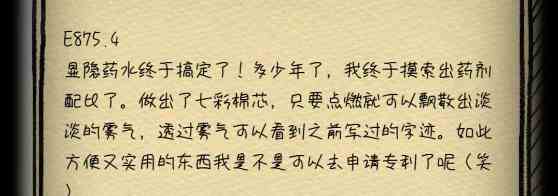 E875.4
显隐药水终于搞定了！多少年了，我终于摸索出药剂
配比了。做出了七彩棉芯，只要点燃就可以飘散出淡
淡的雾气，透过雾气可以看到之前写过的字迹。如此
方便又实用的东西我是不是可以去申请专利了呢（笑
）